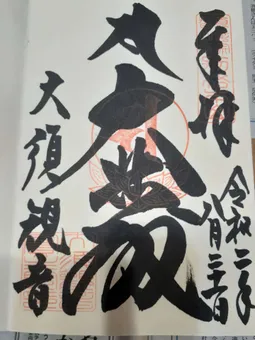 奉拝
令和二年
八月
大悲殿
大須観音